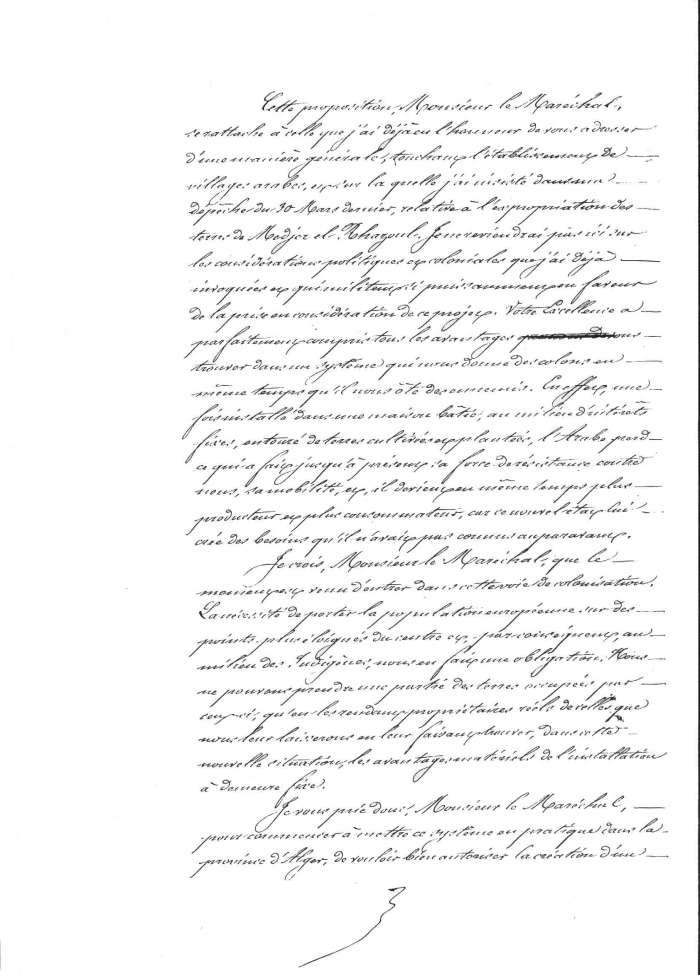 Cette proposition, Monsieur le Maréchal,
se rattache à celle que j'ai déjà eu l'honneur de vous adresser
d'une manière générale, touchant l'établissement de
villages arabes, et sur la quelle j'ai insisté dans ma
dépêche du 30 Mars dernier, relative à l'expropriation des
terres de Medjez el . Je ne reviendrai pas ici sur
les considérations politiques et coloniales que j'ai déjà
invoquées et qui militent si puissamment en faveur
de la prise en considération de ce projet. Votre Excellence a
parfaitement compris tous les avantages
trouver dans un système qui nous donne des colons en
même temps qu'il nous ôte des ennemis. En effet, une
fois installé dans une maison bâtie, au milieu d'intérêts
fixes, entouré de terres cultivées et plantées, l'Arabe perd
ce qui a fait jusqu'à présent sa force de résistance contre
nous, sa mobilité, et, il devient en même temps plus
producteur et plus consommateur, car ce nouvel état lui
crée des besoins qu'il n'avait pas connus auparavant.
Je crois, Monsieur le Maréchal, que le
moment est venu d'entrer dans cette voie de colonisation.
La nécessité de porter la population européenne sur des
points plus éloignés du centre et, par conséquent, au
milieu des Indigènes, nous en fait une obligation. Nous
ne pouvons prendre une partie des terres occupées par
ceux-ci, qu'en les rendant propriétaires réels de celles que
nous leur laisserons en leur faisant trouver, dans cette
nouvelle situation, les avantages matériels de l'installation
à demeure fixe.
Je vous prie donc, Monsieur le Maréchal,
pour commencer à mettre ce système en pratique dans la
province d'Alger, de vouloir bien autoriser la création d'un